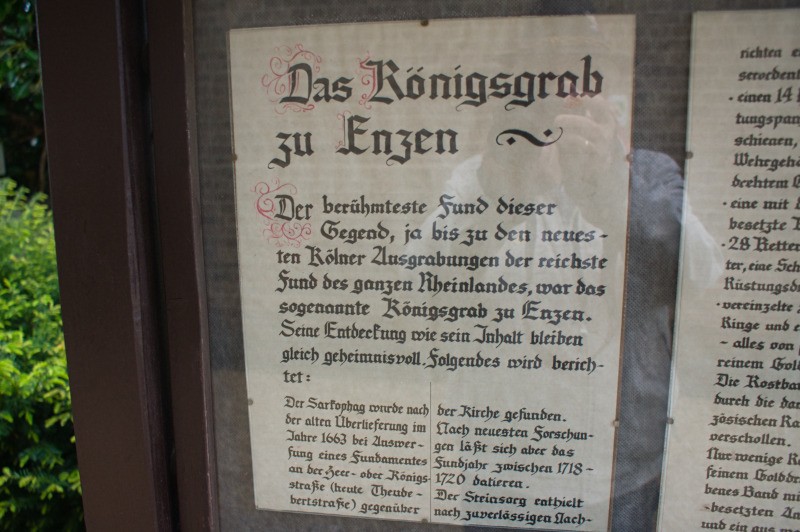 Das Königsgrab
zu Enzen
Der berühmteste Fund dieser
Gegend, ja bis zu den neues-
ten Kölner Ausgrabungen der reichste
Fund des ganzen Rheinlandes, war das
sogenannte Königsgrab zu Enzen.
Seine Entdeckung wie sein Inhalt bleiben
gleich geheimnisvoll. Folgendes wird berich-
tet:
Der Sarkophag wurde nach
der alten Überlieferung im
Jahre 1663 bei Auswer-
fung eines Fundamentes
an der Heer- oder Königs-
straße (heute Theude-
bertstraße) gegenüber
der Kirche gefunden.
Nach neuesten Forschun-
gen läßt sich aber das
Fundjahr zwischen 1718-
1720 datieren.
Der Steinsarg enthielt
nach zuverlässigen Nach-
richten
· einen 14
tungspan
schienen,
Wehrgehä
drehtem
· eine mit
besetzte
· 28 Ketten
ter, eine Sch
Rüstungs
· vereinzelte
Ringe und e
- alles von
reinem Gold
Die Kostbar
durch die da
zösischen Ra
verschollen.
Nur wenige R
feinem Goldbr
benes Band mi
besetzten An
und ein aus